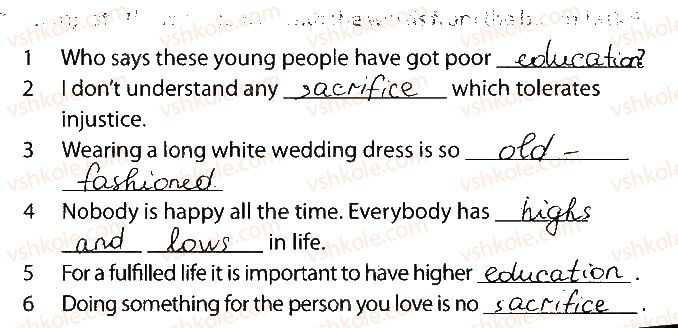 1 Who says these young people have got poor education?
2 I don't understand any sacrifice which tolerates
injustice.
3 Wearing a long white wedding dress is so old –
fashioned.
4 Nobody is happy all the time. Everybody has highs
and lows in life.
5 For a fulfilled life it is important to have higher education.
6 Doing something for the person you love is no sacrifice.
vshkole.com